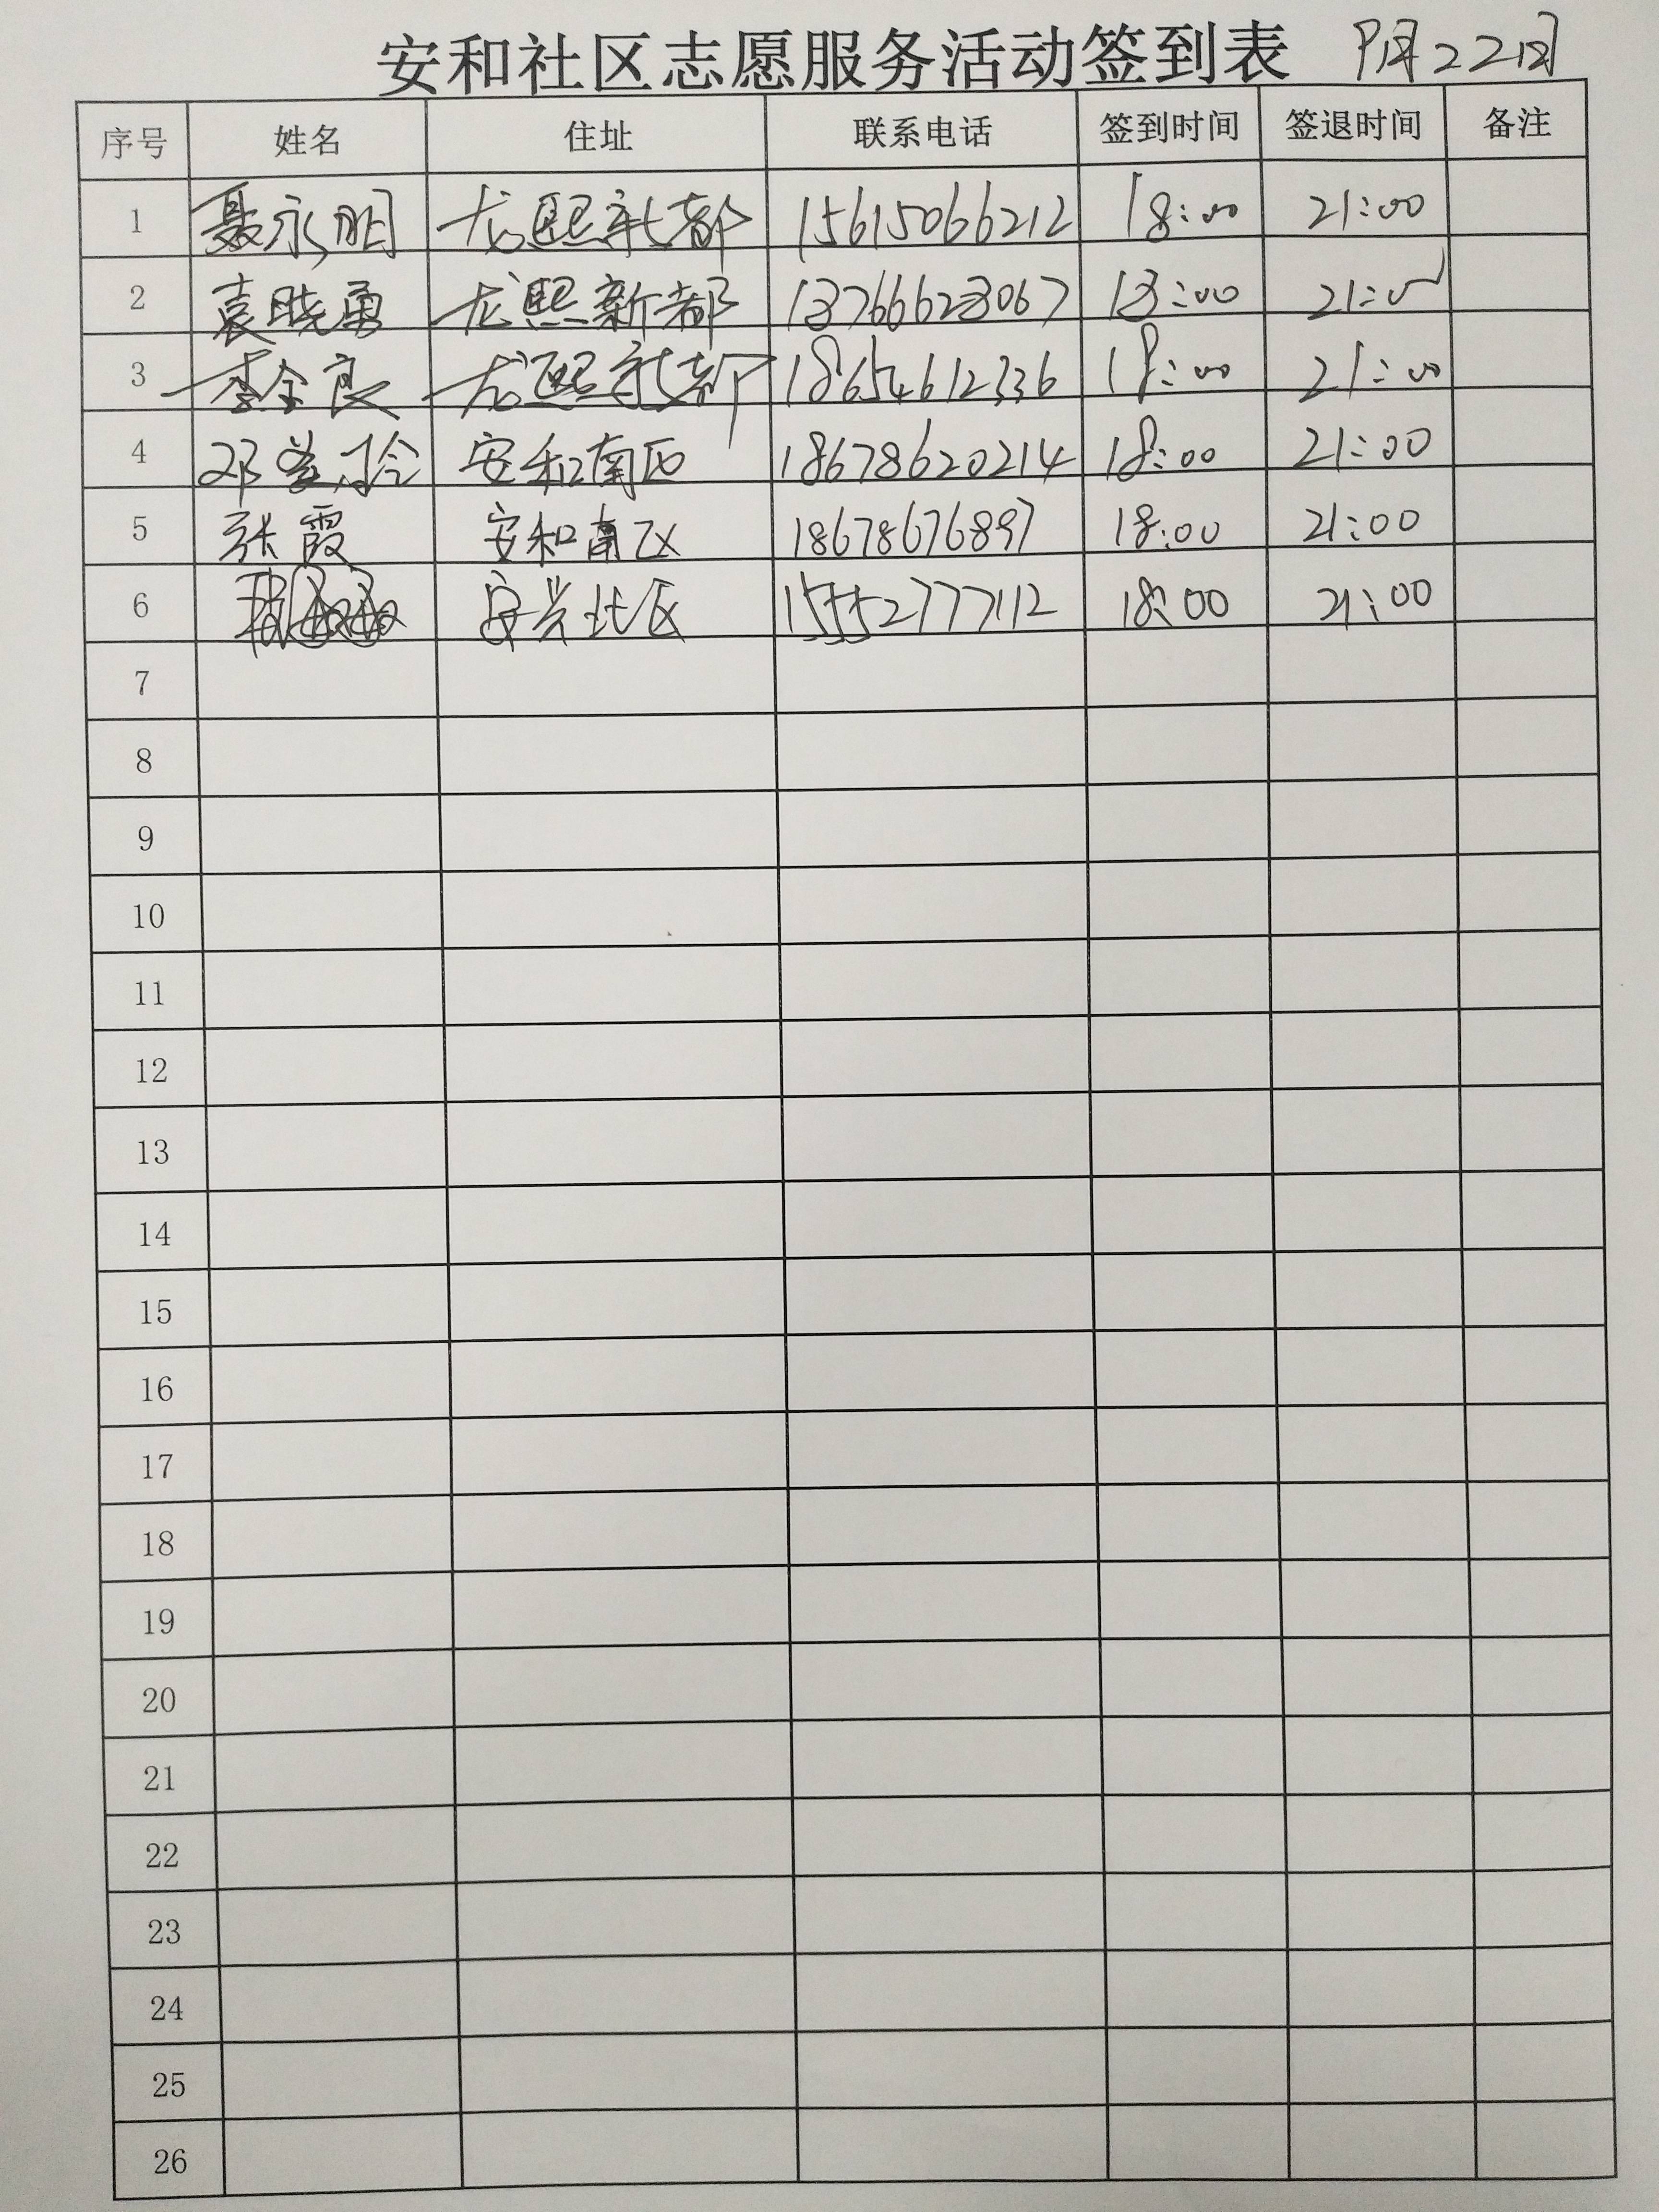 安和社区志愿服务活动签到表 9月22日
序号 姓名 住址 联系电话 签到时间 签退时间 备注
1 聂永明 龙熙新都 15615066212 18:00 21:00
2 袁晓勇 龙熙新都 13766623067 18:00 21:00
3 李全良 龙熙新都 18654612336 18:00 21:00
4 邓 安和南区 18678620214 18:00 21:00
5 张霞 安和南区 18678676897 18:00 21:00
6 安兴北区 15552777112 18:00 21:00
7
8
9
10
11
12
13
14
15
16
17
18
19
20
21
22
23
24
25
26